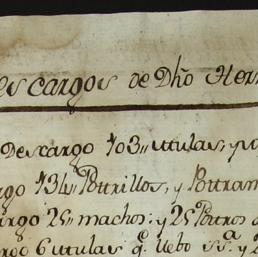 es cargos de Dho Her
Descargo 103 „ Mulas, y p
rgo 134 Pottrillos, y Pottran
argo 25 „ machos: y 25 Pottros d
argo 6 Mulas q.e llebo S.S.a y 2